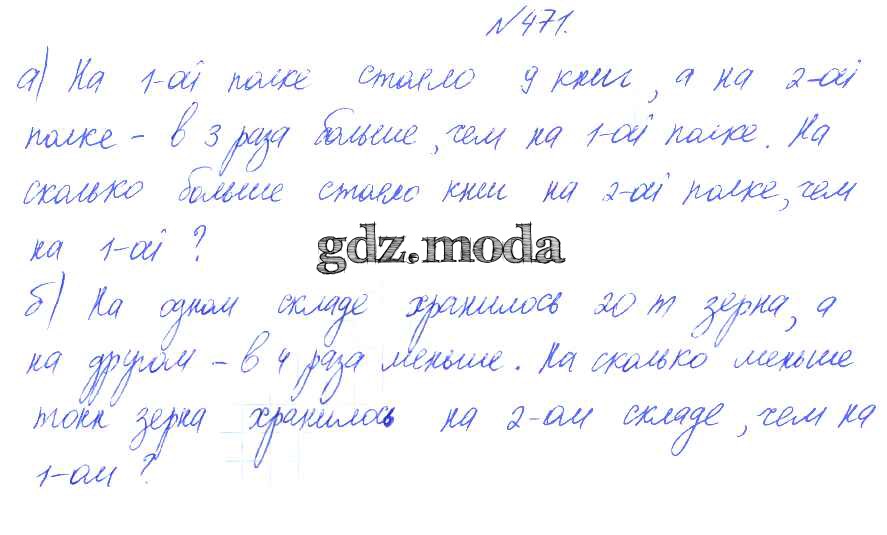 №471.
а) На 1-ой полке стояло 9 книг, а на 2-ой
полке - в 3 раза больше, чем на 1-ой полке. На
сколько больше стояло книг на 2-ой полке, чем
на 1-ой?
gdz.moda
б) На одном складе хранилось 20 т зерна, а
на другом - в 4 раза меньше. На сколько меньше
тонн зерна хранилось на 2-ом складе, чем на
1-ом?